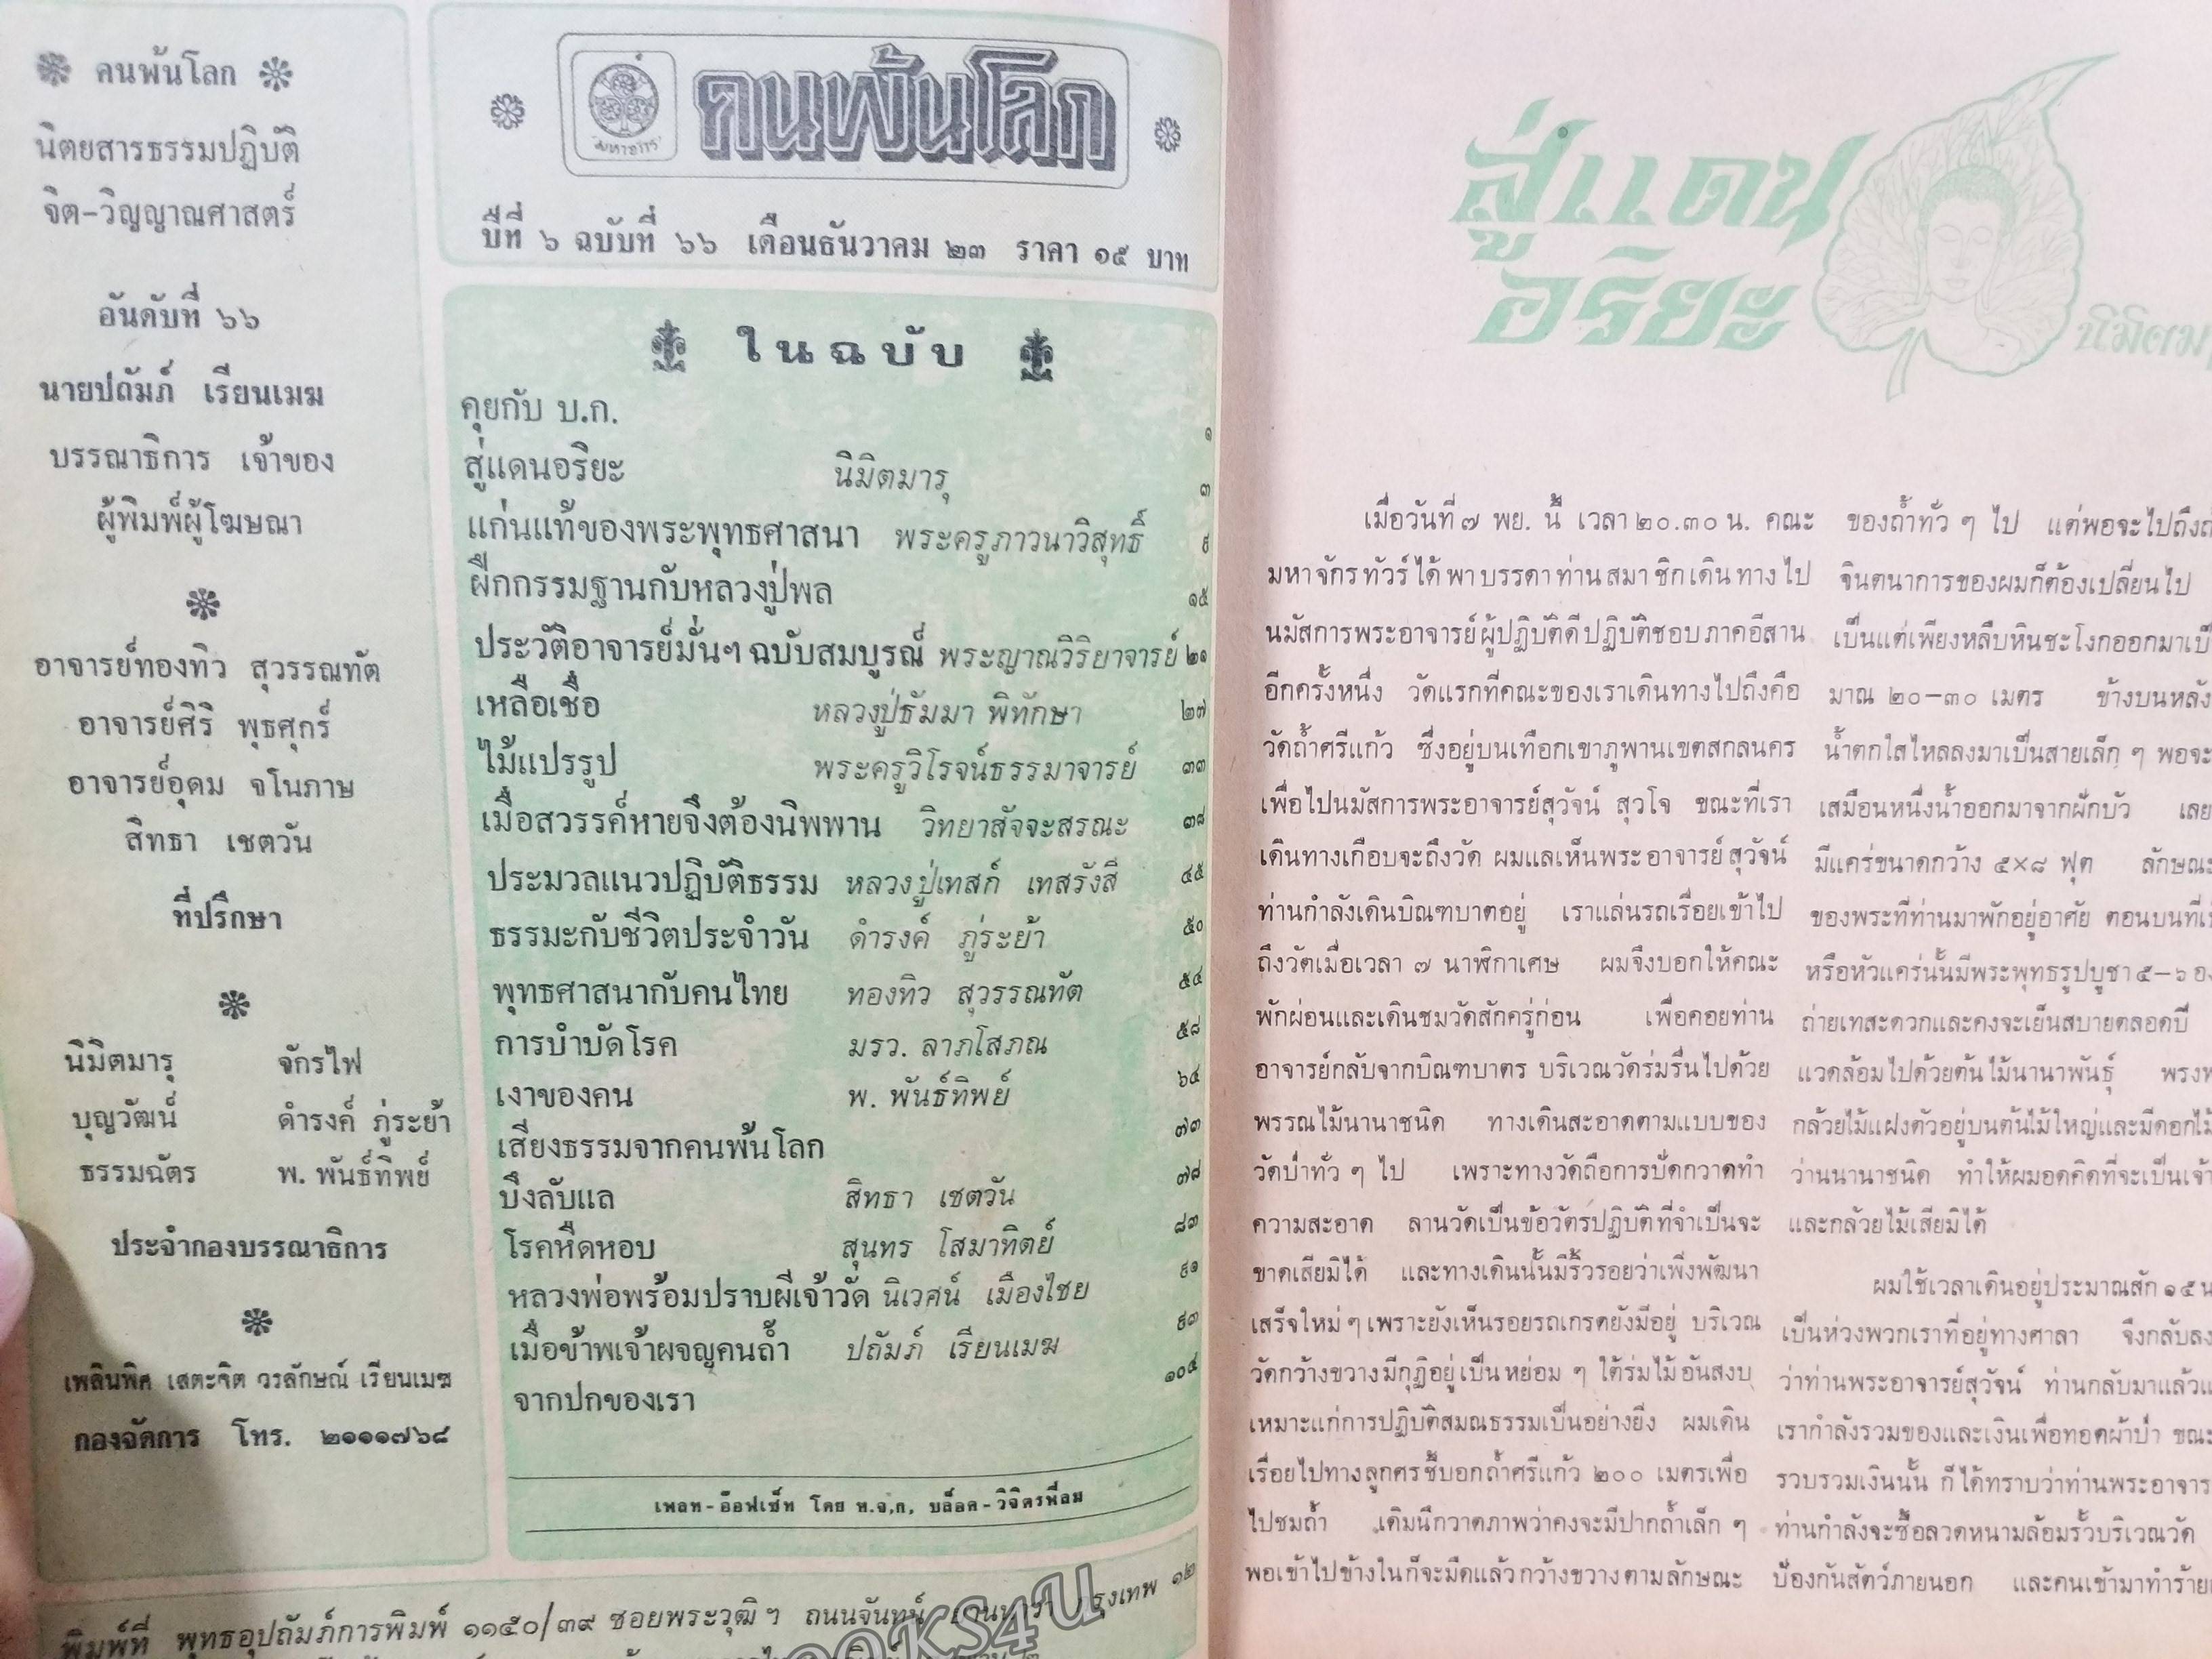 คนพ้นโลก
นิตยสารธรรมปฏิบัติ
จิต-วิญญาณศาสตร์
อันดับที่ ๖๖
นายปถัมภ์ เรียนเมฆ
บรรณาธิการ เจ้าของ
ผู้พิมพ์ผู้โฆษณา
อาจารย์ทองทิว สุวรรณทัต
อาจารย์ศิริ พุธศุกร์
อาจารย์อุดม จโนภาษ
สิทธา เชตวัน
ที่ปรึกษา
นิมิตมารุ จักรไฟ
บุญวัฒน์ ดำรงค์ ภู่ระย้า
ธรรมฉัตร พ. พันธ์ทิพย์
ประจำกองบรรณาธิการ
เพลินพิศ เสตะจิต วรลักษณ์ เรียนเมฆ
กองจัดการ โทร. ๒๑๑๑๗๖๘
คนพ้นโลก
ปีที่ ๖ ฉบับที่ ๖๖ เดือนธันวาคม ๒๓ ราคา ๑๕ บาท
ในฉบับ
คุยกับ บ.ก. ๑
สู่แดนอริยะ นิมิตมารุ ๓
แก่นแท้ของพระพุทธศาสนา พระครูภาวนาวิสุทธิ์ ๙
ฝึกกรรมฐานกับหลวงปู่พล ๑๕
ประวัติอาจารย์มั่นฯ ฉบับสมบูรณ์ พระญาณวิริยาจารย์ ๒๑
เหลือเชื่อ หลวงปู่ธัมมา พิทักษา ๒๗
ไม้แปรรูป พระครูวิโรจน์ธรรมาจารย์ ๓๓
เมื่อสวรรค์หายจึงต้องนิพพาน วิทยาสัจจะสรณะ ๓๘
ประมวลแนวปฏิบัติธรรม หลวงปู่เทสก์ เทสรังสี ๔๕
ธรรมะกับชีวิตประจำวัน ดำรงค์ ภู่ระย้า ๕๐
พุทธศาสนากับคนไทย ทองทิว สุวรรณทัต ๕๔
การบำบัดโรค มรว. ลาภโสภณ ๕๘
เงาของคน พ. พันธ์ทิพย์ ๖๔
เสียงธรรมจากคนพ้นโลก ๗๓
บึงลับแล สิทธา เชตวัน ๗๘
โรคหืดหอบ สุนทร โสมาทิตย์ ๘๓
หลวงพ่อพร้อมปราบผีเจ้าวัด นิเวศน์ เมืองไชย ๙๑
เมื่อข้าพเจ้าผจญคนถ้ำ ปถัมภ์ เรียนเมฆ ๙๓
จากปกของเรา ๑๐๔
เพลท-อ๊อฟเซ็ท โดย ห.จ.ก. บล็อค-วิจิตรฟีล์ม
พิมพ์ที่ พุทธอุปถัมภ์การพิมพ์ ๑๑๕๐/๓๙ ซอยพระวุฒิฯ ถนนจันทน์ ยานนาวา กรุงเทพ ๑๒
BOOKS4U
สู่แดน
อริยะ
นิมิตมา
เมื่อวันที่ ๗ พย. นี้ เวลา ๒๐.๓๐ น. คณะ
มหาจักรทัวร์ได้พาบรรดาท่านสมาชิกเดินทางไป
นมัสการพระอาจารย์ผู้ปฏิบัติดีปฏิบัติชอบภาคอีสาน
อีกครั้งหนึ่ง วัดแรกที่คณะของเราเดินทางไปถึงคือ
วัดถ้ำศรีแก้ว ซึ่งอยู่บนเทือกเขาภูพานเขตสกลนคร
เพื่อไปนมัสการพระอาจารย์สุวัจน์ สุวโจ ขณะที่เรา
เดินทางเกือบจะถึงวัด ผมแลเห็นพระอาจารย์สุวัจน์
ท่านกำลังเดินบิณฑบาตอยู่ เราแล่นรถเรื่อยเข้าไป
ถึงวัดเมื่อเวลา ๗ นาฬิกาเศษ ผมจึงบอกให้คณะ
พักผ่อนและเดินชมวัดสักครู่ก่อน เพื่อคอยท่าน
อาจารย์กลับจากบิณฑบาตร บริเวณวัดร่มรื่นไปด้วย
พรรณไม้นานาชนิด ทางเดินสะอาดตามแบบของ
วัดป่าทั่ว ๆ ไป เพราะทางวัดถือการปัดกวาดทำ
ความสะอาด ลานวัดเป็นข้อวัตรปฏิบัติที่จำเป็นจะ
ขาดเสียมิได้ และทางเดินนั้นมีริ้วรอยว่าเพิ่งพัฒนา
เสร็จใหม่ ๆ เพราะยังเห็นรอยรถเกรดยังมีอยู่ บริเวณ
วัดกว้างขวางมีกุฏิอยู่เป็นหย่อม ๆ ใต้ร่มไม้อันสงบ
เหมาะแก่การปฏิบัติสมณธรรมเป็นอย่างยิ่ง ผมเดิน
เรื่อยไปทางลูกศรชี้บอกถ้ำศรีแก้ว ๒๐๐ เมตรเพื่อ
ไปชมถ้ำ เดิมนึกวาดภาพว่าคงจะมีปากถ้ำเล็ก ๆ
พอเข้าไปข้างในก็จะมืดแล้วกว้างขวางตามลักษณะ
ของถ้ำทั่ว ๆ ไป แต่พอจะไปถึงถ
จินตนาการของผมก็ต้องเปลี่ยนไป
เป็นแต่เพียงหลืบหินชะโงกออกมาเป็
มาณ ๒๐-๓๐ เมตร ข้างบนหลัง
น้ำตกใสไหลลงมาเป็นสายเล็ก ๆ พอจะ
เสมือนหนึ่งน้ำออกมาจากฝักบัว เลย
มีแคร่ขนาดกว้าง ๕×๘ ฟุต ลักษณะ
ของพระที่ท่านมาพักอยู่อาศัย ตอนบนที่เ
หรือหัวแคร่นั้นมีพระพุทธรูปบูชา ๕-๖ อง
ถ่ายเทสะดวกและคงจะเย็นสบายตลอดปี
แวดล้อมไปด้วยต้นไม้นานาพันธุ์ พรรณ
กล้วยไม้แฝงตัวอยู่บนต้นไม้ใหญ่และมีดอกไม้
ว่านนานาชนิด ทำให้ผมอดคิดที่จะเป็นเจ้า
และกล้วยไม้เสียมิได้
ผมใช้เวลาเดินอยู่ประมาณสัก ๑๕ น
เป็นห่วงพวกเราที่อยู่ทางศาลา จึงกลับลง
ว่าท่านพระอาจารย์สุวัจน์ ท่านกลับมาแล้วแ
เรากำลังรวมของและเงินเพื่อทอดผ้าป่า ขณะ
รวบรวมเงินนั้น ก็ได้ทราบว่าท่านพระอาจาร
ท่านกำลังจะซื้อลวดหนามล้อมรั้วบริเวณวัด
ป้องกันสัตว์ภายนอก และคนเข้ามาทำร้าย